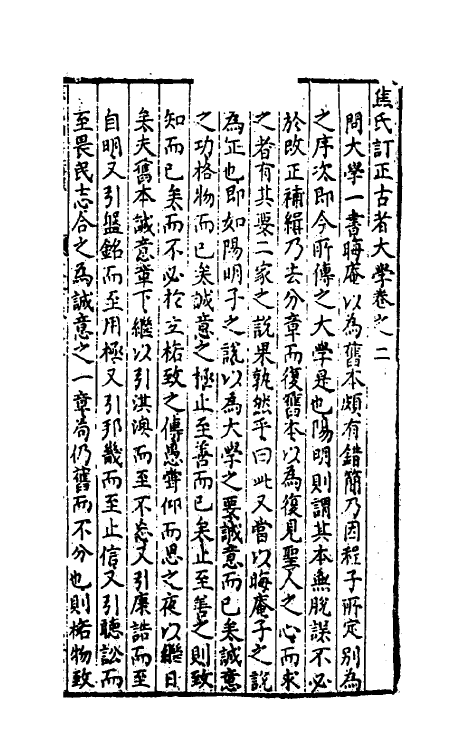 焦氏訂正古者大學卷之二
問大學一書晦庵以為舊本頗有錯簡乃因程子所定別為
之序次即今所傳之大學是也陽明則謂其本無脫誤不必
於改正補緝乃去分章而復舊本以為復見聖人之心而求
之者有其要二家之說果孰然乎曰此又當以晦庵子之說
為正也即如陽明子之說以為大學之要誠意而已矣誠意
之功格物而已矣誠意之極止至善而已矣止至善之則致
知而已矣而不必於立格致之傳愚嘗仰而思之夜以繼日
矣夫舊本誠意章下繼以引淇澳而至不忘又引康誥而至
自明又引盤銘而至用極又引邦畿而至止信又引聽訟而
至畏民志合之為誠意之一章尚仍舊而不分也則格物致